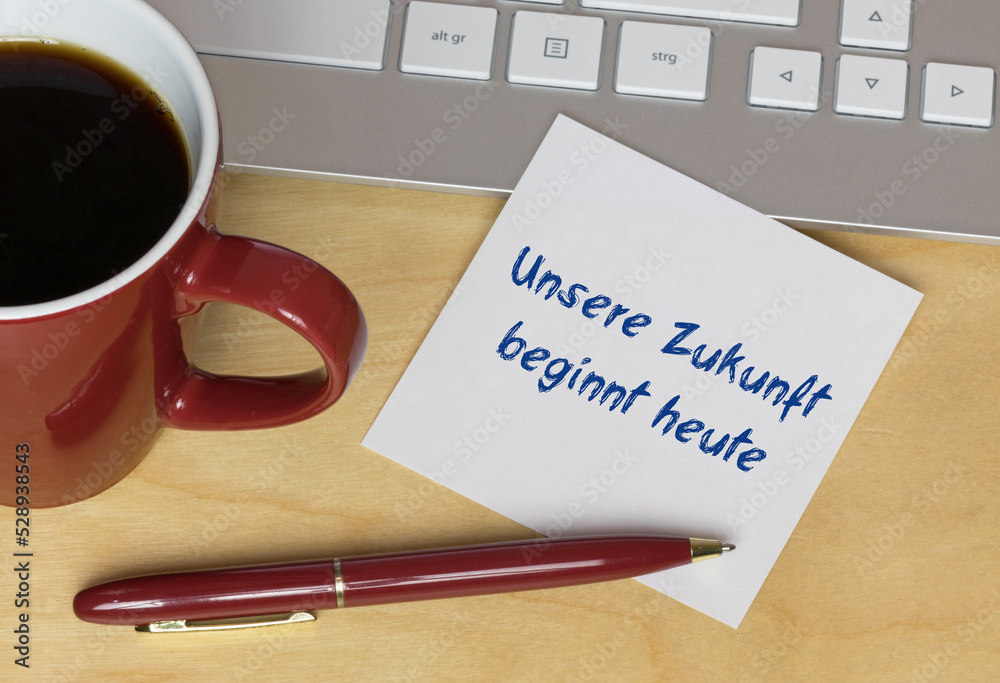 alt gr
strg
Unsere Zukunft
beginnt heute
Adobe Stock | #528938543